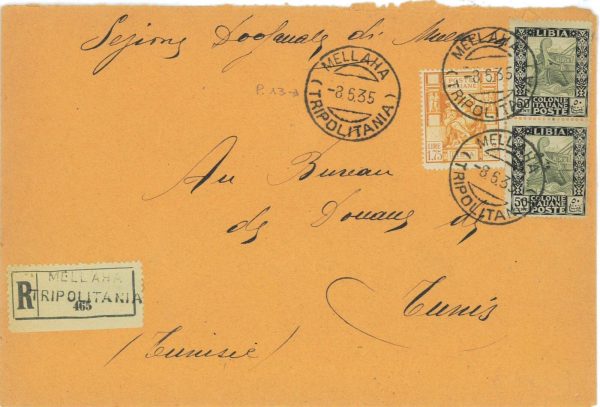 Sezione Doganale di
P. 13
MELLAHA
-8.5.35
(TRIPOLITANIA)
POSTE
ITALIANE
LIRE 1.75
MELLAHA
-8.5.35
(TRIPOLITANIA)
LIBIA
50
COLONIE
ITALIANE
POSTE
MELLAHA
-8.5.35
(TRIPOLITANIA)
LIBIA
50
COLONIE
ITALIANE
POSTE
Au Bureau
de Douane de
Tunis
(Tunisie)
R
MELLAHA
TRIPOLITANIA
465